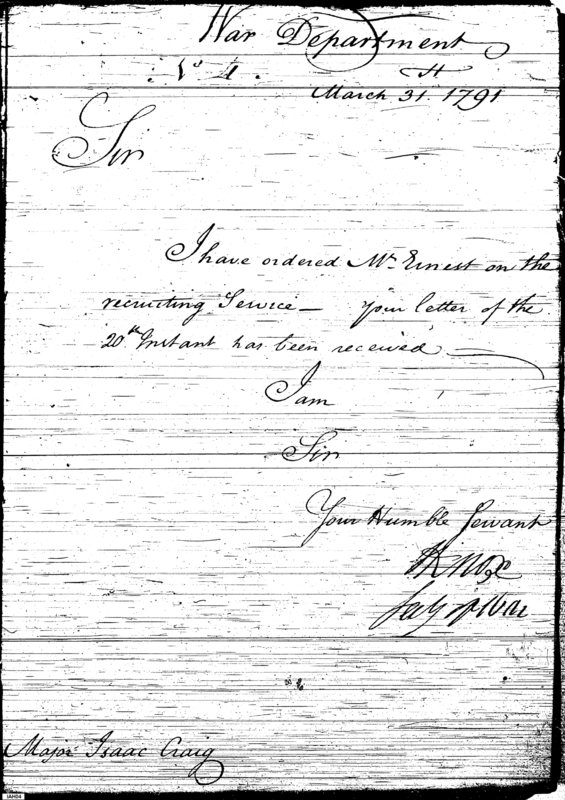 War Department
No 1.
March 31. 1791
Sir
I have ordered Mr. Ernest on the
recruiting Service — Your letter of the
20th Instant has been received —
I am
Sir
Your Humble Servant
HKnox
Secy of War
Major Isaac Craig
IAH04